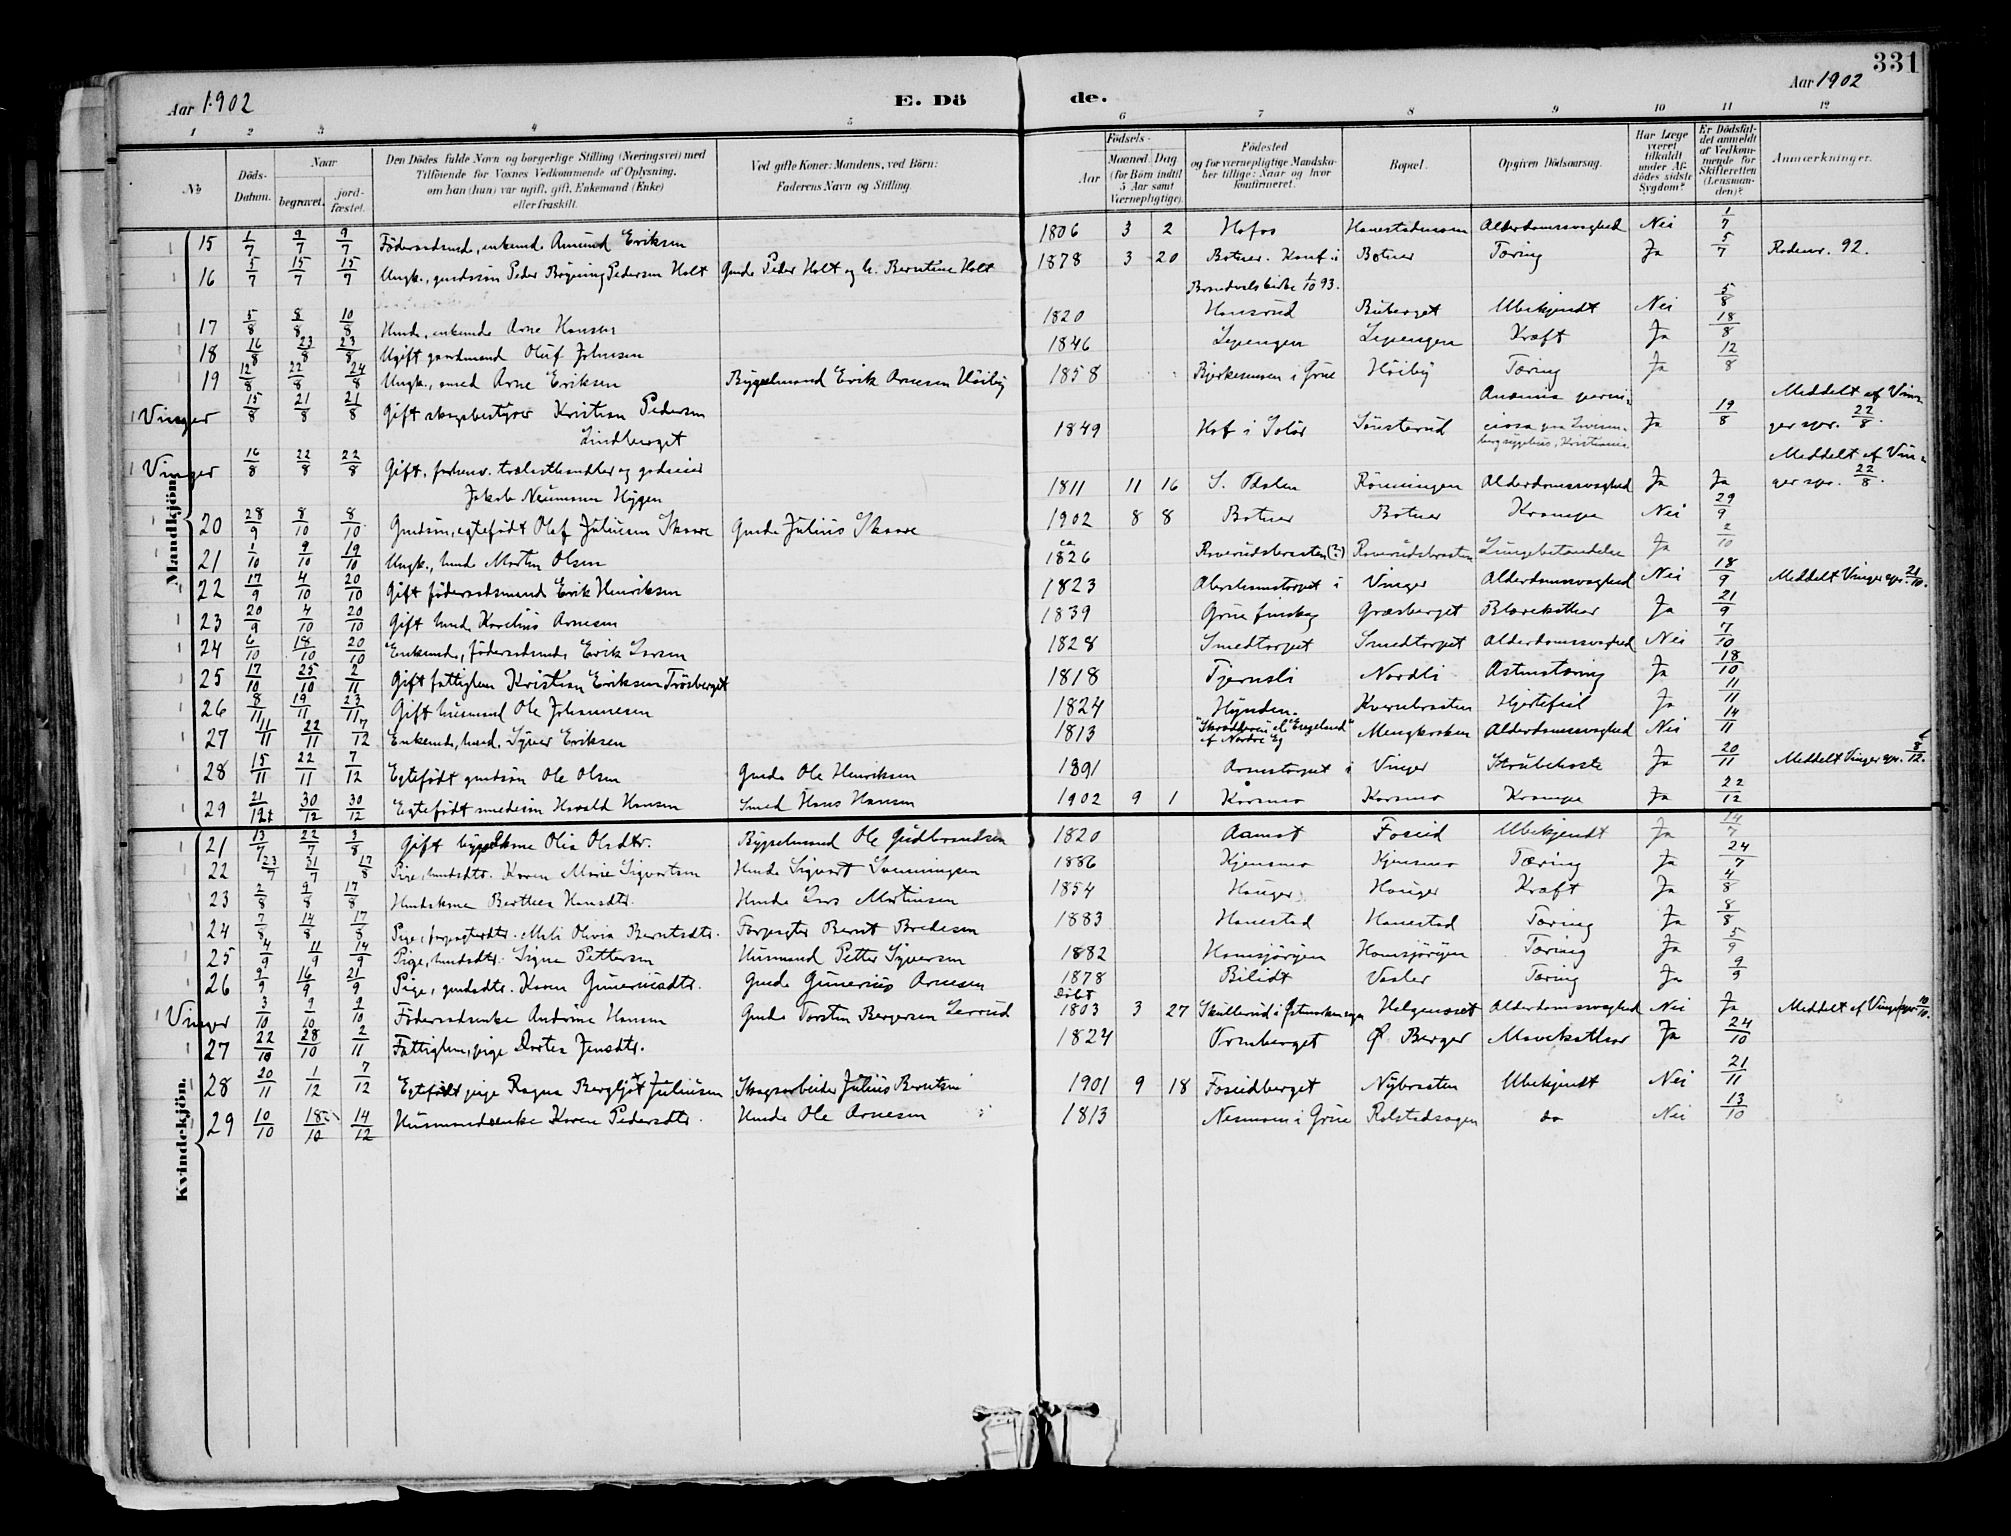 331
Aar 1902 E. Dö de. Aar 1902
1 2 3 4 5 6 7 8 9 10 11 12
№ Döds-Datum. Naar begravet. jord-fæstet. Den Dödes fulde Navn og borgerlige Stilling (Næringsvei) med Tilföiende for Voxnes Vedkommende af Oplysning, om han (hun) var ugift, gift, Enkemand (Enke) eller fraskilt. Ved gifte Koner: Mandens, ved Börn: Faderens Navn og Stilling. Aar Födsels- Maaned. Dag (for Börn indtil 5 Aar samt Værnepligtige). Födested og for værnepligtige Mandska-ber tillige: Naar og hvor konfirmeret. Bopæl. Opgiven Dödsaarsag. Har Læge været tilkaldt under Af-dödes sidste Sygdom? Er Dödsfal-det anmeldt af Vedkom-mende for Skifteretten (Lensman-den)? Anmærkninger.
Mandkjön.
15 1/7 9/7 9/7 Föderaadsmd, enkemd. Amund Eriksen 1806 3 2 Hofos Alderdomssvaghed Nei 1/7
16 5/7 15/7 15/7 Ungk., gmdssön Peder Pedersen Holt Gmd. Peder Holt og h. Berntine Holt 1878 3 20 Botner. Konf. i Botner Tæring Ja 5/7 Rodenr. 92.
Brandvals kirke 1/10 93.
17 5/8 8/8 10/8 Hmd., enkemd. Arne Hansen 1820 Hansrud Buberget Ubekjendt Nei 5/8
18 16/8 23/8 23/8 Ugift gaardmand Oluf Johnsen 1846 Kræft Ja 18/8
19 12/8 22/8 24/8 Ungk., smed Arne Eriksen Bygselmand Erik Arnesen Höiby 1858 i Grue Höiby Tæring Ja 12/8
Vinger 15/8 21/8 21/8 Gift skogsbestyrer Kristian Pedersen Lindberget 1849 Hof i Solör Sönsterud Anæmia perni-ciosa Kristiania. Ja 19/8 Meddelt af Vin-ger spr. 22/8.
Vinger 16/8 22/8 22/8 Gift, forhenv. trælasthandler og godseier Jakob Neumann Hygen 1811 11 16 S. Odalen Rönningen Alderdomssvaghed Ja Ja Meddelt af Vin-ger spr. 22/8.
20 28/9 8/10 8/10 Gmdssön, egtefödt Olaf Juliusen Skaare Gmd. Julius Skaare 1902 8 8 Botner Botner Krampe Nei 29/9
21 1/10 9/10 19/10 Ungk., hmd. Morten Olsen ca 1826 Roverudsbraaten (?) Roverudsbraaten Lungebetændelse Ja 2/10
22 17/9 4/10 20/10 Gift föderaadsmand Erik Henriksen 1823 Abrahamstorpet i Vinger Alderdomssvaghed Nei 18/9 Meddelt Vinger spr. 21/10.
23 20/9 4/10 20/10 Gift hmd. Karelius Arnesen 1839 Grue finskog Græsberget Blærekathar Ja 21/9
24 6/10 18/10 20/10 Enkemd., föderaadsmd. Erik Larsen 1828 Smedtorpet Smedtorpet Alderdomssvaghed Nei 7/10
25 17/10 25/10 2/11 Gift fattiglem Kristian Eriksen Frösberget 1818 Tjernsli Nordli Ja 18/10
26 8/11 19/11 23/11 Gift husmand Ole Johannesen 1824 Hynden Kvernbraaten Hjertefeil Ja 11/11
27 11/11 22/11 7/12 Enkemd., hmd. Syver Eriksen 1813 "Skrædderen" el. "Engeland" af Nordre Eg Mengkroken Alderdomssvaghed Nei 14/11
28 15/11 22/11 7/12 Egtefödt gmdssön Ole Olsen Gmd. Ole Henriksen 1891 Arnestorpet i Vinger Strubehoste Ja 20/11 Meddelt Vinger spr. 8/12.
29 21/12 30/12 30/12 Egtefödt smedesön Harald Hansen Smed Hans Hansen 1902 9 1 Kårsmo Korsmo Krampe Ja 22/12
Kvindekjön.
21 13/7 22/7 3/8 Gift bygselkone Olia Olsdtr. Bygselmand Ole Gudbrandsen 1820 Aamot Foseid Ubekjendt Ja 14/7
22 23/7 31/7 17/8 Pige, hmdsdtr. Karen Marie Sigvartsen Hmd. Sigvart Svenningsen 1886 Kjensmo Kjensmo Tæring Ja 24/7
23 2/8 9/8 17/8 Hmdskone Berthea Hansdtr. Hmd. Lars Martinsen 1854 Hauger Hauger Kræft Ja 4/8
24 7/8 14/8 17/8 Pige, forpagterdtr. Meli Olivia Berntsdtr. Forpagter Bernt Bredesen 1883 Hanestad Hanestad Tæring Ja 8/8
25 4/9 11/9 14/9 Pige, hmdsdtr. Signe Pettersen Husmand Petter Syversen 1882 Tæring Ja 5/9
26 9/9 16/9 21/9 Pige, gmdsdtr. Karen Gunerusdtr. Gmd. Gunerius Arnesen 1878 Bilidt Vaaler Tæring Ja 9/9
Vinger 3/10 9/10 9/10 Föderaadsenke Andrine Hansen Gmd. Torsten Bergersen Lerrud Döbt 1803 3 27 Skullerud i Østmarkaskogen Helgeneset Alderdomssvaghed Nei Ja Meddelt af Vinger spr. 10/10.
27 22/10 28/10 2/11 Fattiglem, pige Dortea Jensdtr. 1824 Ormberget Ø. Berger Mavekathar Ja 24/10
28 20/11 1/12 7/12 Egtefödt pige Ragna Bergljot Juliusen Skogsarbeider Julius Berntsen 1901 9 18 Foseidberget Nybraaten Ubekjendt Nei 21/11
29 10/10 18/10 14/12 Husmandsenke Karen Pedersdtr. Hmd. Ole Arnesen 1813 Nesmoen i Grue Rolstadsagen do Nei 13/10